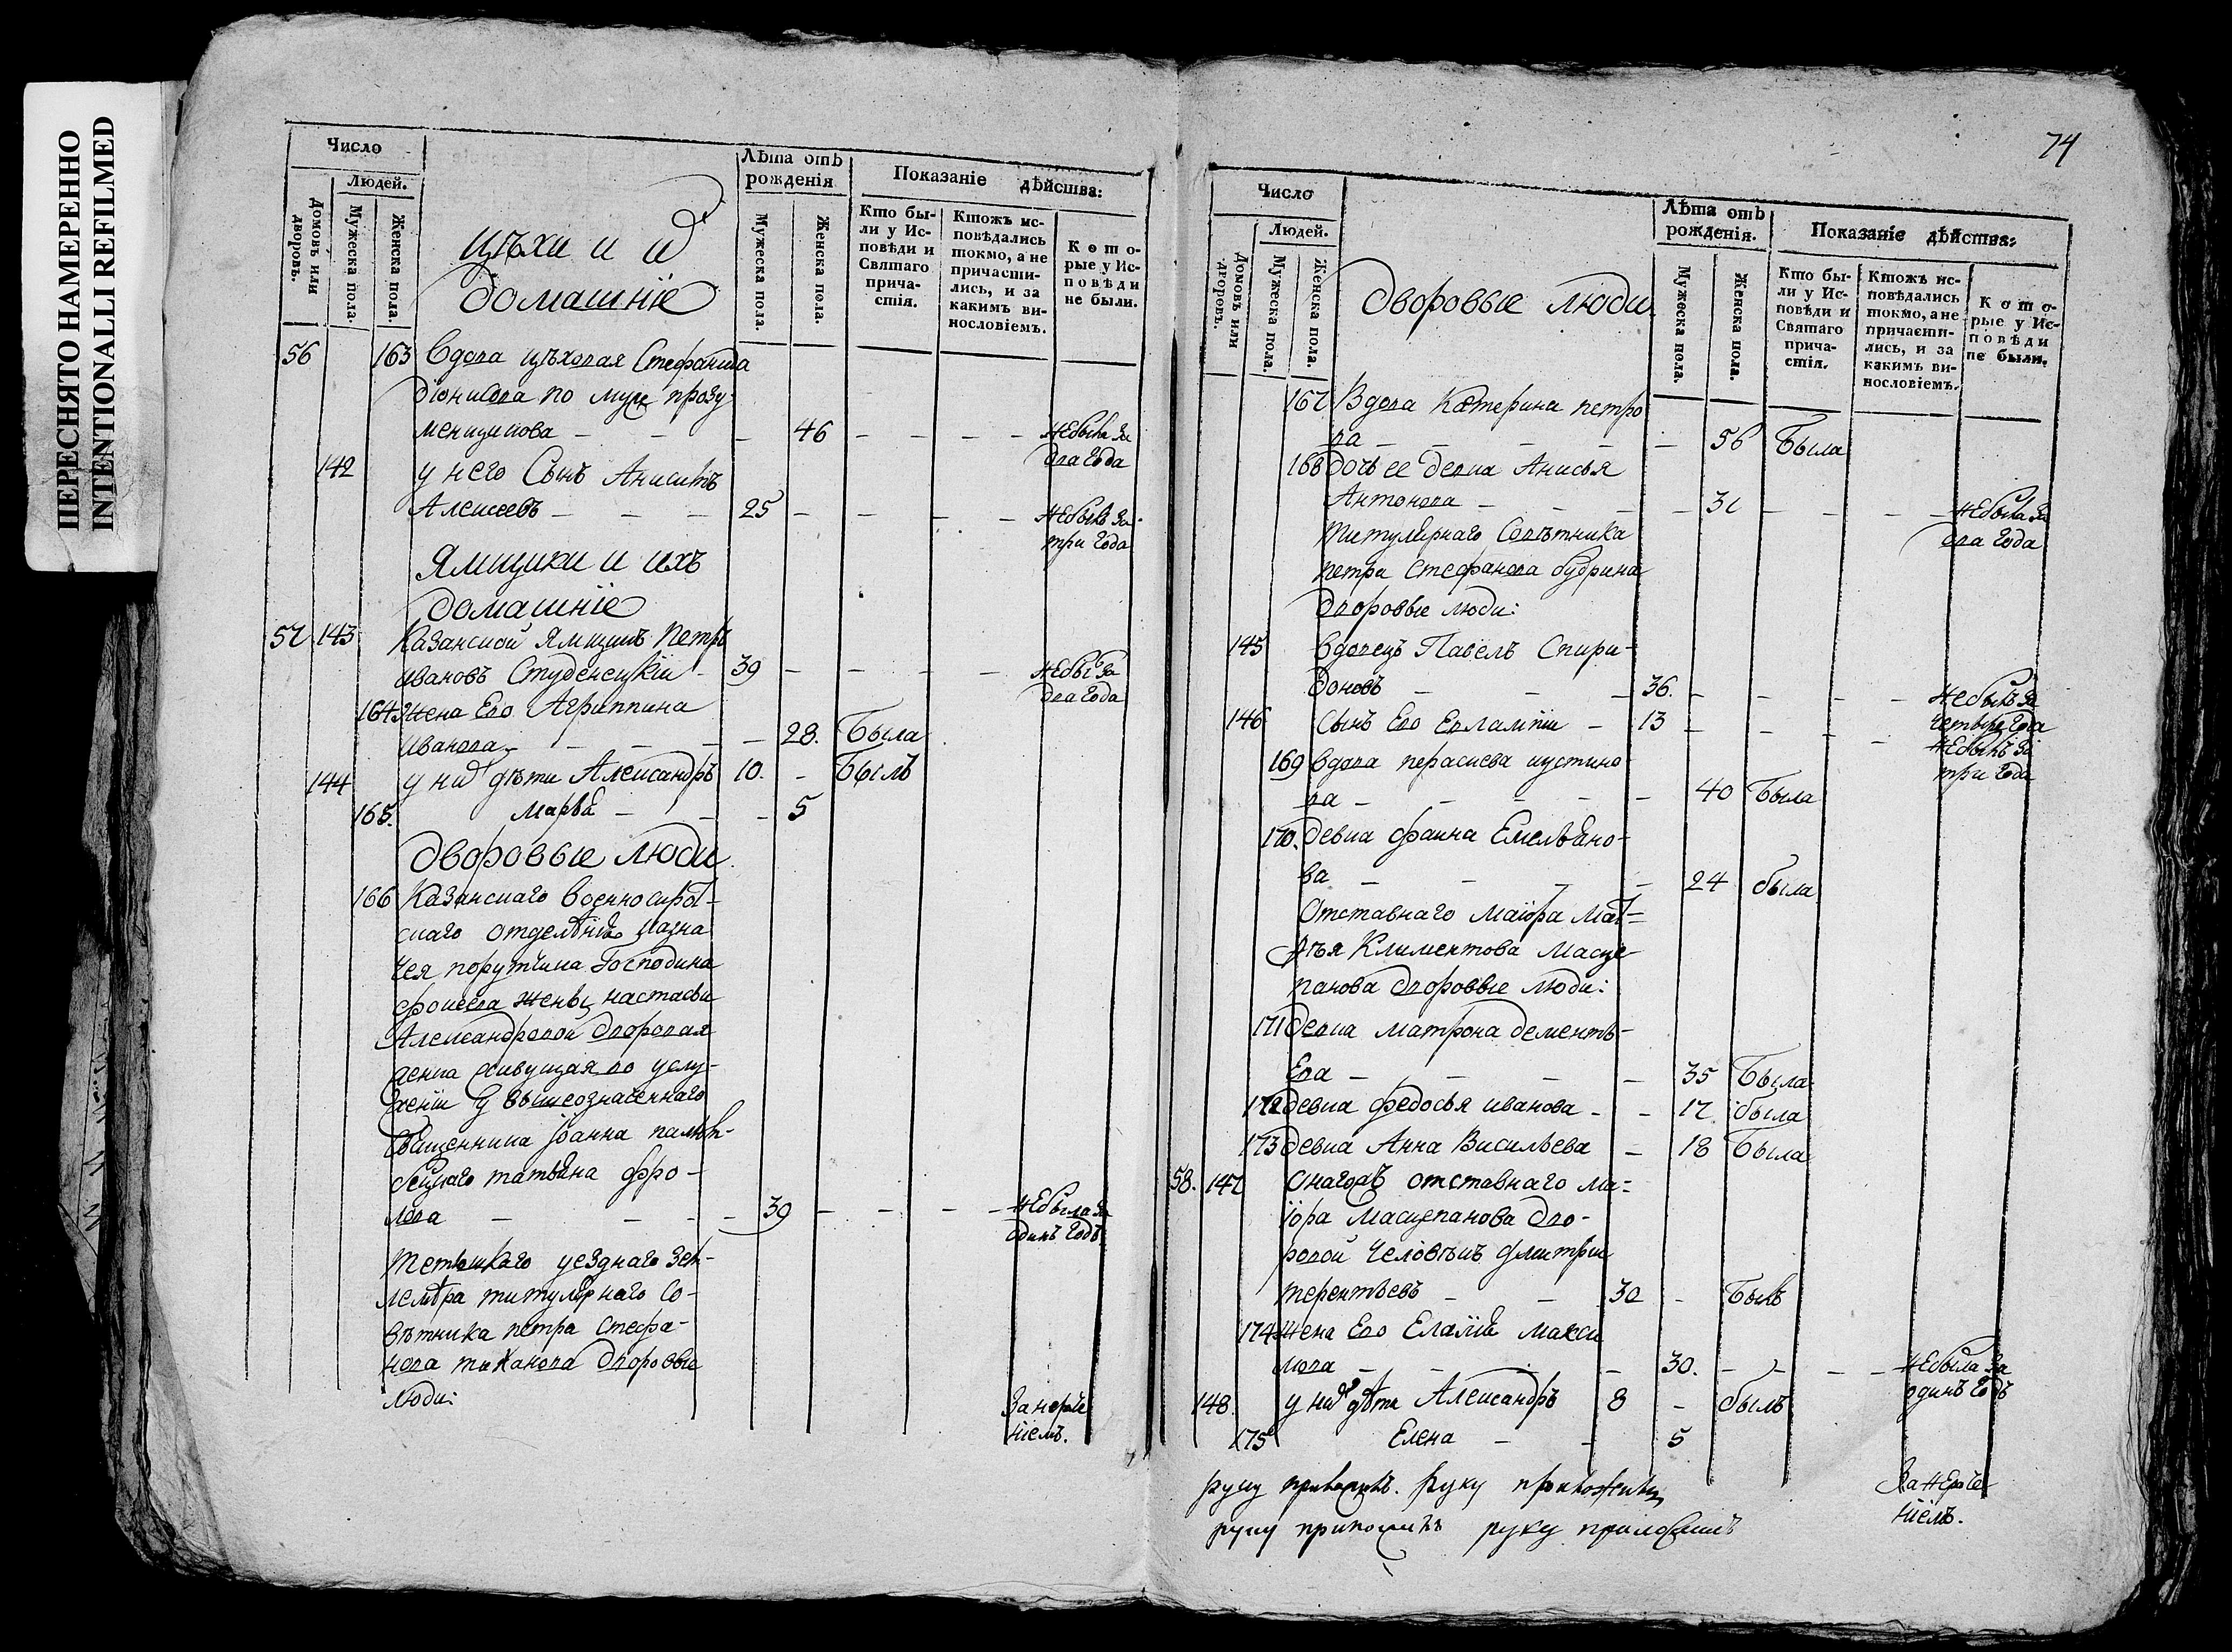 ПЕРЕСНЯТО НАМЕРЕННО
INTENTIONALLI REFILMED
Число
Людей.
Домовъ или дворовъ.
Мужеска пола.
Женска пола.
Лѣта отъ рожденія
Мужеска пола.
Женска пола.
Показаніе дѣйства:
Кто были у Исповѣди и Святаго причастія.
Ктожъ исповѣдались токмо, а не причастились, и за какимъ винословіемъ.
Которые у Исповѣди не были.
цѣхи и и
домашніе
56 163 Вдова цѣховая Стефанида
Діонисова по муже прозу
меницикова — — — 46 — — — — небыла за
два года
142 у него Сынъ Аникитъ
Алексеевъ — — — 25 — — — — небылъ за
три года
Ямщики и ихъ
домашніе
57 143 Казанской Ямщикъ Петръ
Ивановъ Студенецкій — 39 — — — — небы за
два года
164 Жена Его Агриппина
Иванова — — — — 28. Была
144 у них дѣти Александръ 10. — Былъ
165. Марѳа — — — 5
Дворовые люди
166 Казанскаго Военносирот-
скаго отделѣнія Казна
чея порутчика Господина
Фокеева жены настасьи
Александровой Дворовая
девка живущая во услу-
женіи у вышеозначеннаго
Священника Іоанна
татьяна фро-
лова — — — — 39 — — — — небыла за
одинъ годъ
Тетюшкаго уезднаго Зем-
лемѣра титулярнаго Со-
вѣтника петра Стефа-
нова Дворовые
люди:
74
Число
Людей.
Домовъ или дворовъ.
Мужеска пола.
Женска пола.
Лѣта отъ рожденія.
Мужеска пола.
Женска пола.
Показаніе дѣйства:
Кто были у Исповѣди и Святаго причастія.
Ктожъ исповѣдались токмо, а не причастились, и за какимъ винословіемъ.
Которые у Исповѣди не были.
Дворовые люди
167 Вдова Катерина петро
ва — — — — — 56 Была
168 дочь ее девка Анисья
Антонова — — — — 31 — — — — небыла за
два года
Титулярнаго Совѣтника
петра Стефанова
Дворовые люди:
145 Вдовецъ Павелъ Спири-
доновъ — — — 36. — — — — небылъ за
четыре года
146 Сынъ Его Евлампій — 13 — — — — небылъ за
три года
169 Вдова парасцева иустино
ва — — — — — 40 Была
170. Девка фаина Емельяно-
ва — — — — 24 была
Отставнаго Маіора Мат-
ѳѣя Климентова Масце
панова Дворовые люди:
171 Девка матрона дементь-
Ева — — — — 35 Была
172 Девка федосья иванова — — 17 была
173 Девка Анна Васильева — 18 Была
58. 147 Онагожъ отставнаго ма-
іора Масцепанова Дво-
ровой Человѣкъ Дмитрій
терентьевъ — — 30 — Былъ
174 Жена Его Елація Макси
мова — — — — 30. — — — — небыла за
одинъ годъ
148. у них дѣти Александръ 8 — былъ
175 Елена — — 5
руку руку
руку руку приложилъ